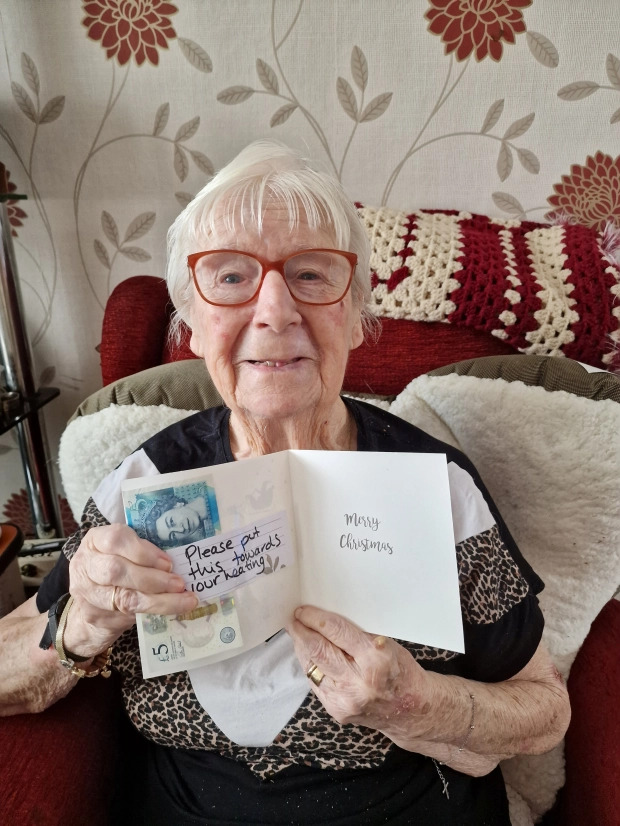 Please put
this towards
your heating
£5
Merry
Christmas